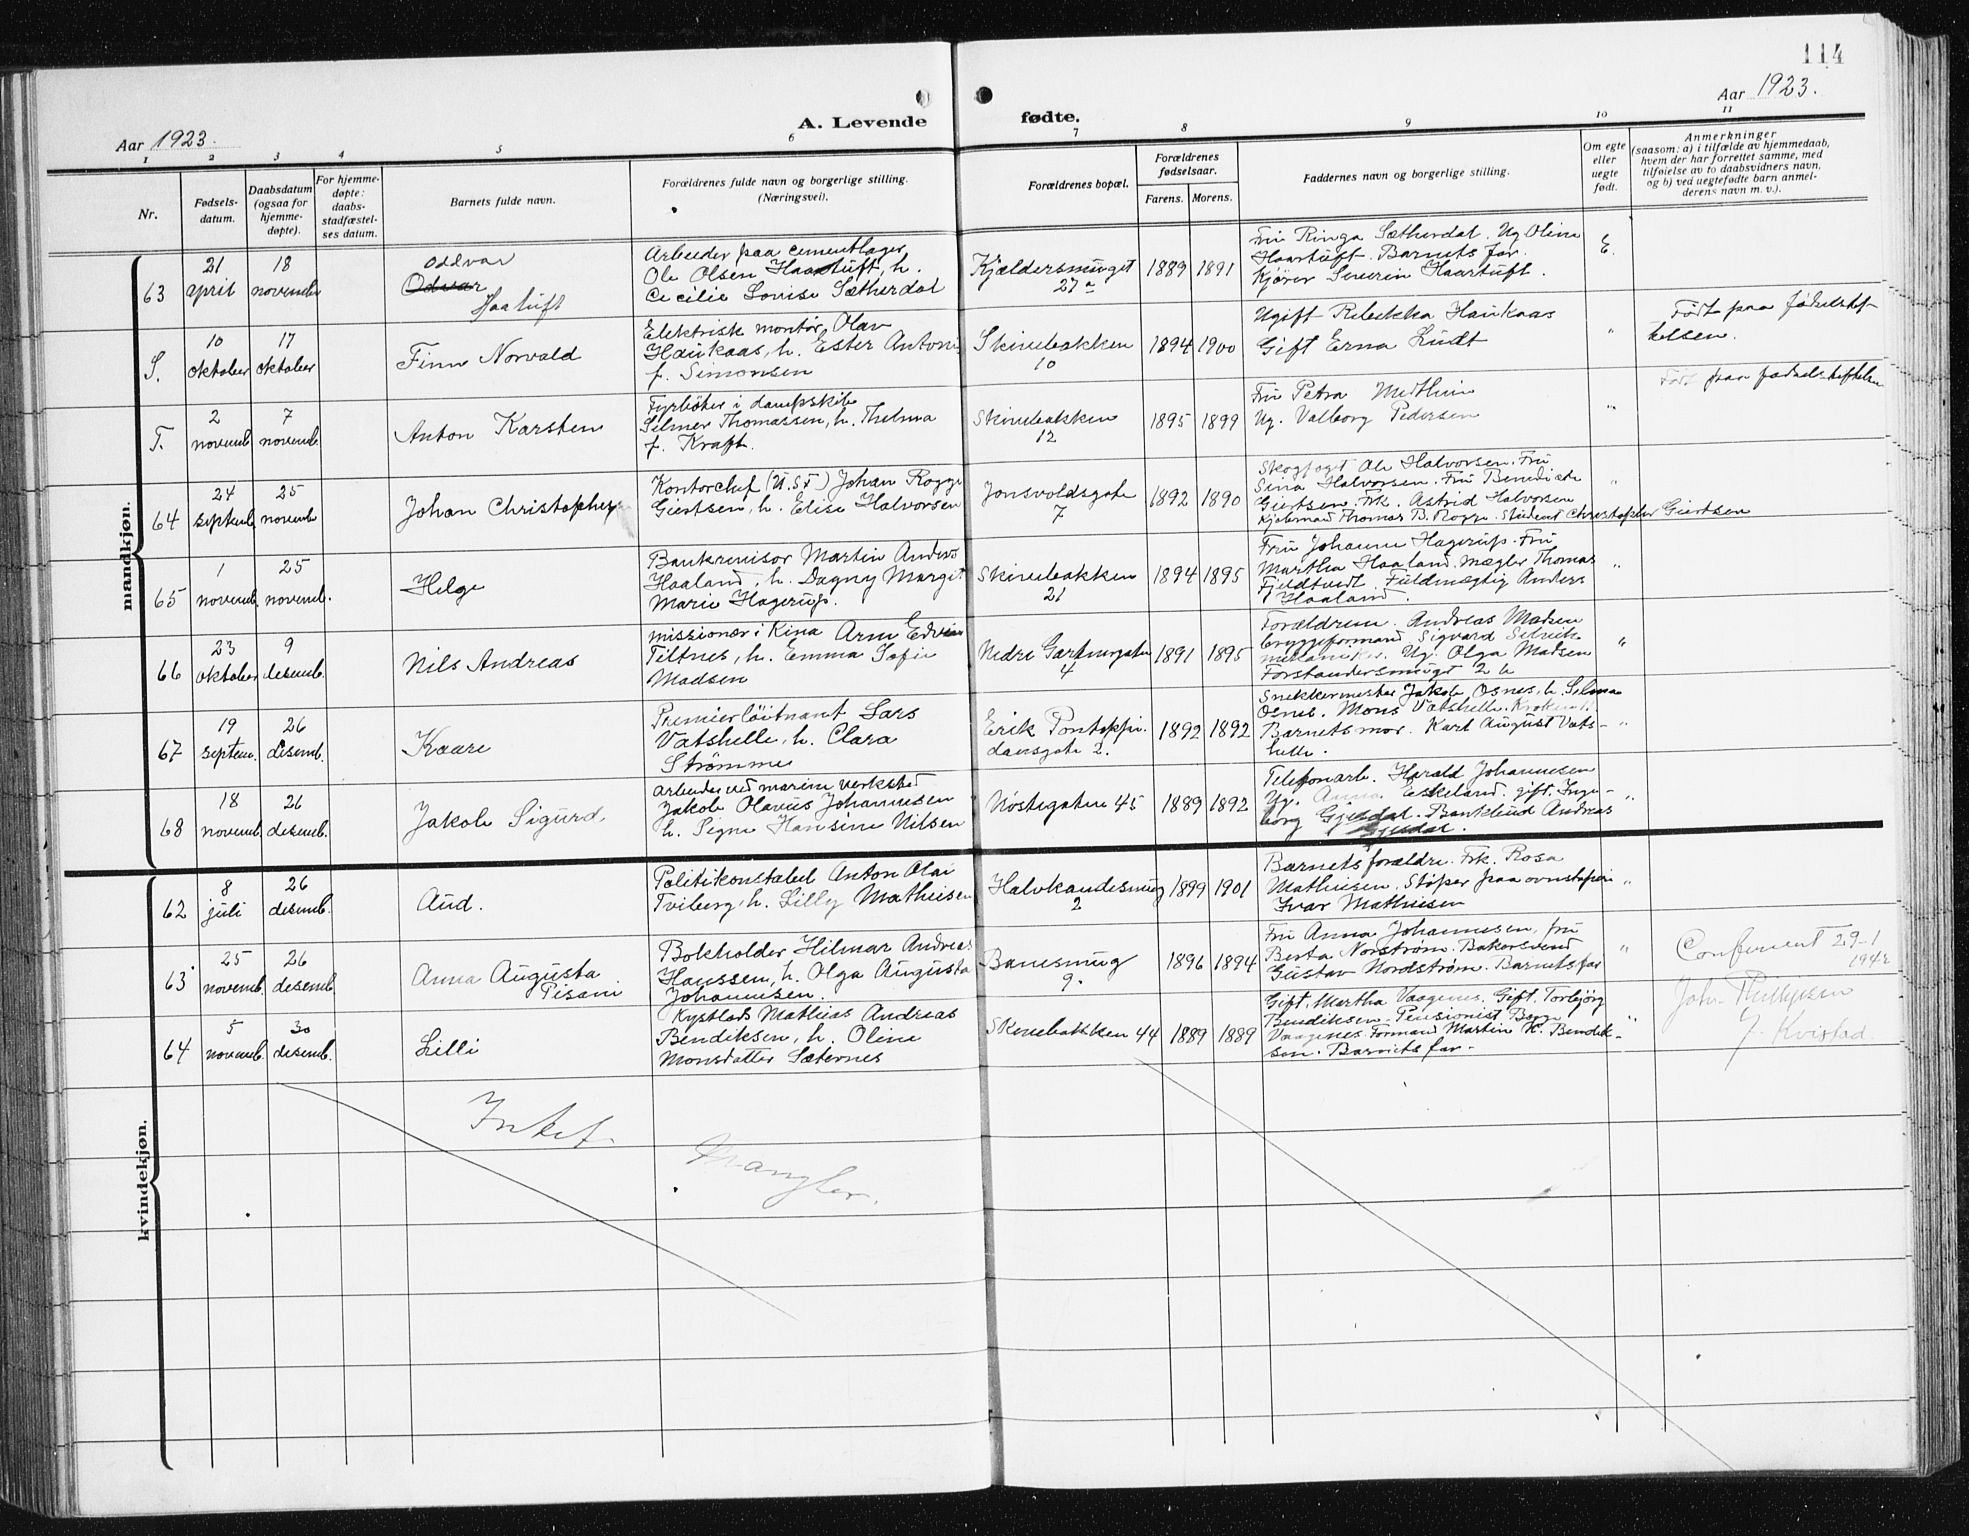 114
Aar 1923.
Aar 1923.
A. Levende fødte.
1 2 3 4 5 6 7 8 9 10 11
Nr.
Fødsels-
datum.
Daabsdatum
(ogsaa for
hjemme-
døpte).
For hjemme-
døpte:
daabs-
stadfæstel-
ses datum.
Barnets fulde navn.
Forældrenes fulde navn og borgerlige stilling.
(Næringsvei).
Forældrenes bopæl.
Forældrenes
fødselsaar.
Farens. Morens.
Faddernes navn og borgerlige stilling.
Om egte
eller
uegte
født.
Anmerkninger
(saasom: a) i tilfælde av hjemmedaab,
hvem der har forrettet samme, med
tilføielse av to daabsvidners navn,
og b) ved uegtefødte barn anmel-
derens navn m. v.).
mandkjøn.
63
21
april
18
novemb
Oddvar
Odvar
Haatuft
Arbeider paa cementlager
Ole Olsen Haartuft, h.
Cecilie Lovise Sætherdal
Kjældersmuget
27a
1889 1891
Fru Ringa Sætherdal. Ug Oline
Haartuft. Barnets far.
Kjører Severin Haartuft.
E.
S.
10
oktober
17
oktober
Finn Norvald
Elektrisk montør Olav
Haukaas, h. Ester Antoni
f. Simonsen
Skivebakken
10
1894 1900
Ugift Rebekka Haukaas
Gift Erna Lindt
"
Født paa fødselstif-
telsen.
T.
2
novemb
7
novemb.
Anton Karsten
Fyrbøter i dampskib
Selmer Thomassen, h. Thelma
f. Kraft.
Skivebakken
12
1895 1899
Fru Petra
Ug. Valborg Pedersen
"
Født paa fødselstiftelsen
64
24
septemb
25
novemb
Johan Christopher
Kontorchef (U.S.T.) Johan Rogge
Giertsen, h. Elise Halvorsen
Jonsvoldsgate
7
1892 1890
Skogfogt Ole Halvorsen. Fru
Sina Halvorsen. Fru Benedicte
Giertsen. Frk. Astrid Halvorsen
Kjøbmand Thomas B. Rogge. Student Christopher Giertsen
"
65
1
novemb.
25
novemb.
Helge
Bankrevisor Martin Anders
Haaland, h. Dagny Margit
Marie Hagerup.
Skivebakken
21
1894 1895
Fru Johanne Hagerup. Fru
Martha Haaland. Mægler Thomas
Fjeldtvedt. Fuldmægtig Anders
Haaland.
"
66
23
oktober
9
desemb.
Nils Andreas
missionær i Kina Arne Edvin
Tiltnes, h. Emma Sofie
Madsen
Nedre Gartnergate
4
1891 1895
Forældrene. Andreas Madsen
bryggeformand. Sigvard
mekaniker. Ug. Olga Madsen
Forstandersmuget 2 b
"
67
19
septem.
26
desemb.
Kaare
Premierløitnant Lars
Vatshelle, h. Clara
Strømme
Erik Pontoppi-
dansgate 2.
1892 1892
Snekkermester Jakob Osnes, h. Selma
Osnes. Mons Vatshelle.
Barnets mor. Karl August Vats-
helle.
"
68
18
novemb.
26
desemb.
Jakob Sigurd.
arbeider ved marine verksted
Jakob Olavus Johannesen
h. Signe Hansine Nilsen
Nøstegaten 45
1889 1892
Telefonarb. Harald Johannesen
Ug. Anna Eskeland. gift. Inge-
borg Gjesdal. Bankbud Andreas
Gjesdal.
"
kvindekjøn.
62
8
juli
26
desemb.
Aud.
Politikonstabel Anton Olai
Tviberg, h. Lilly Mathiesen
Halvkandesmug
2
1899 1901
Barnets forældre. Frk. Rosa
Mathiesen. Støper paa ovnstøperi
Ivar Mathiesen
"
63
25
novemb.
26
desemb.
Anna Augusta
Pisani
Bokholder Hilmar Andreas
Hanssen, h. Olga Augusta
Johannesen.
Banesmug
9.
1896 1894
Fru Anna Johannesen, fru
Berta Norstrøm. Bakersvend
Gustav Nordstrøm. Barnets far
"
Confirmert 29-1
1942
64
5
novemb.
30
desemb.
Lilli
Kystlods Mathias Andreas
Bendiksen, h. Oline
Monsdatter Sæternes
Skivebakken 44
1889 1889
Gift. Martha Vaagenes. Gift. Torbjørg
Bendiksen. Pensionist Børge
Vaagenes. Formand Martin K. Bendik-
sen. Barnets far.
"
Kvistad
Intet
Mangler.